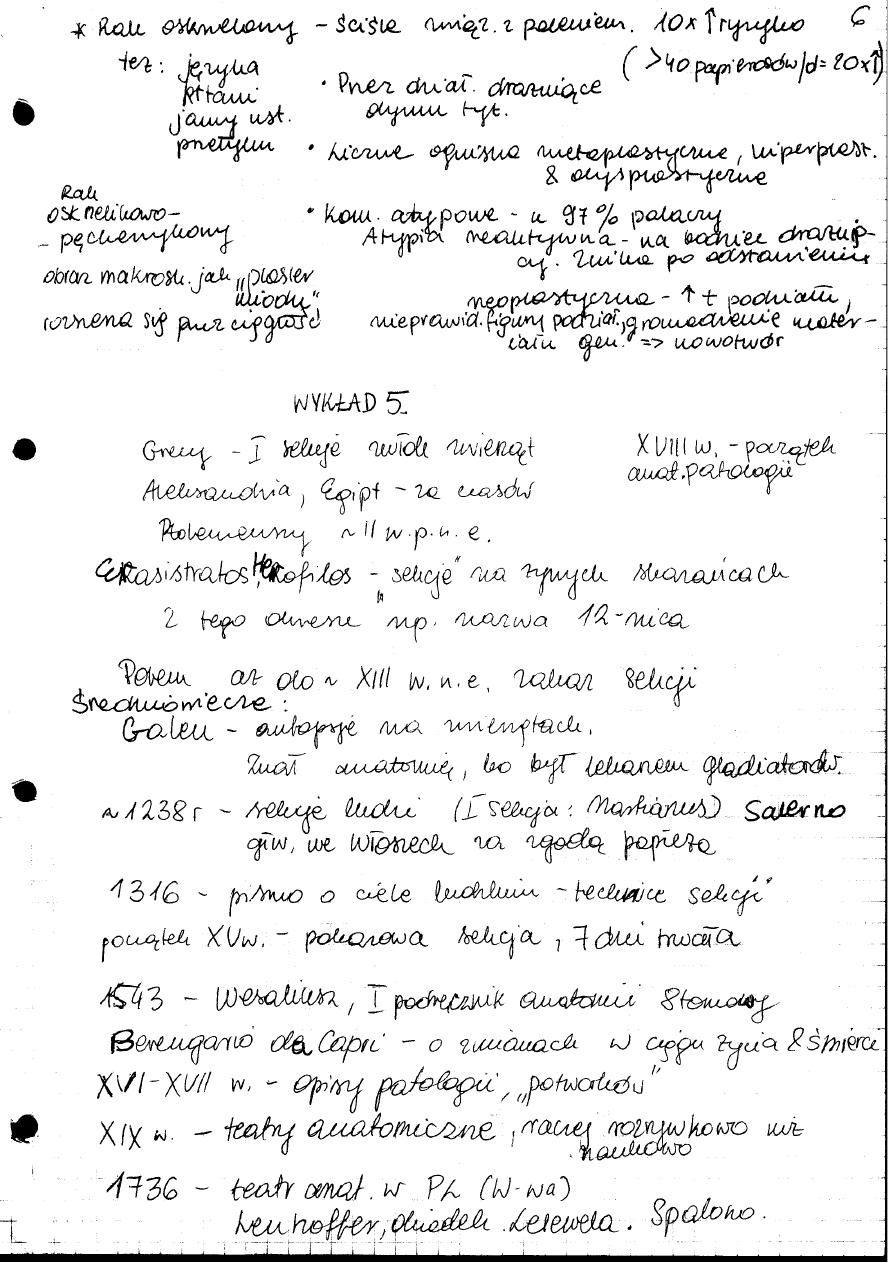 6
* Rak oskrzelowy - ściśle związ. z paleniem. 10x ↑ ryzyko
(>40 papierosów/d = 20x↑)
też: języka
krtani
jamy ust.
przełyku
• Przez dział. drażniące
dymu tyt.
• Liczne ogniska metaplastyczne, hiperplast.
& dysplastyczne
Rak
oskrzelikowo-
-pęcherzykowy
obraz makrosk. jak „plaster
miodu"
rozszerza się przez ciągłość
• Kom. atypowe - u 97% palaczy
Atypia reaktywna - na bodziec drażnią-
cy. Znika po odstawieniu
neoplastyczna - ↑ t podziału,
nieprawid. figury podział., gromadzenie mater-
iału gen. => nowotwór
WYKŁAD 5
Grecy - I sekcje zwłok zwierząt
XVIII w. - początek
anat. patologii
Aleksandria, Egipt - za czasów
Ptolemeuszy ~ II w.p.n.e.
Erasistratos, Herofilos - „sekcje" na żywych skazańcach
Z tego okresu np. nazwa 12-nica
Potem aż do ~ XIII w. n.e. zakaz sekcji
Średniowiecze:
Galen - autopsje na zwierzętach.
Znał anatomię, bo był lekarzem gladiatorów.
~1238r - sekcje ludzi (I sekcja: Martianus) Salerno
głw. we Włoszech za zgodą papieża
1316 - pismo o ciele ludzkim - technice sekcji
początek XV w. - pokazowa sekcja, 7 dni trwała
1543 - Wesaliusz, I podręcznik anatomii
Berengario da Capri - o zmianach w ciągu życia & śmierci
XVI-XVII w. - opisy patologii, „potworków"
XIX w. - teatry anatomiczne, raczej rozrywkowo niż
naukowo
1736 - teatr anat. w PL (W-wa)
Lenhoffer, dziadek Lelewela. Spalono.